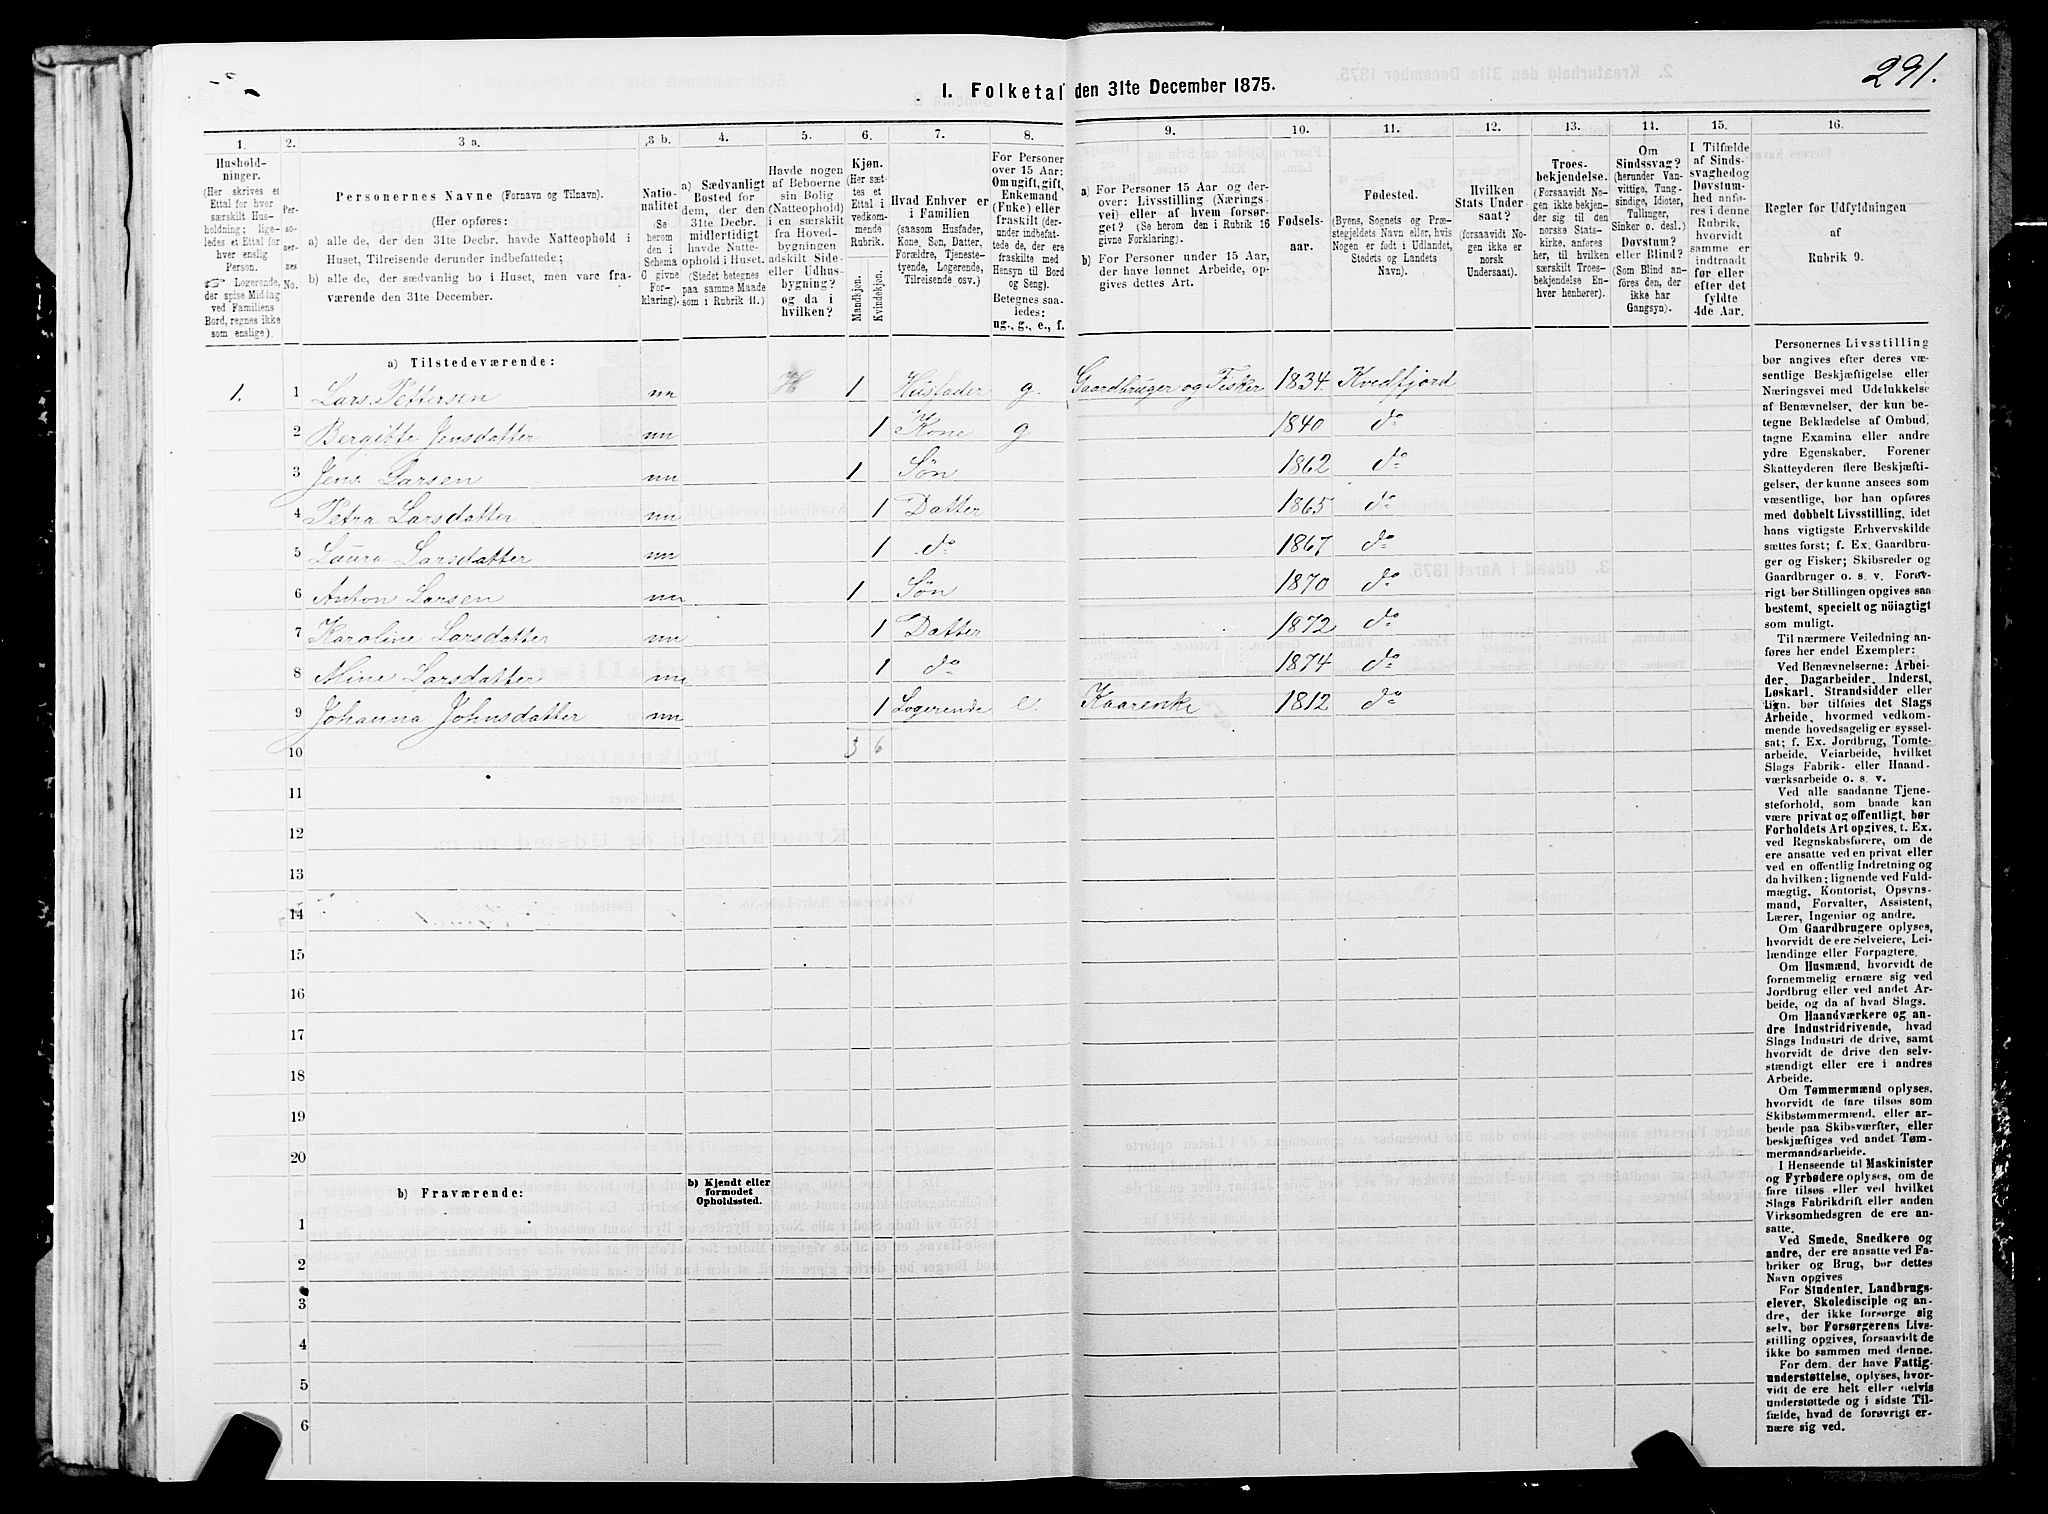 291.
I. Folketal den 31te December 1875.
1. 2. 3 a. 3 b. 4. 5. 6. 7. 8. 9. 10. 11. 12. 13. 14. 15. 16.
Hushold-
ninger.
(Her skrives et
Ettal for hver
særskilt Hus-
holdning; lige-
ledes et Ettal for
hver enslig
Person.
☞ Logerende,
der spise Middag
ved Familiens
Bord, regnes ikke
som enslige).
Per-
so-
ner-
nes
No.
Personernes Navne (Fornavn og Tilnavn).
(Her opføres:
a) alle de, der den 31te Decbr. havde Natteophold i
Huset, Tilreisende derunder indbefattede;
b) alle de, der sædvanlig bo i Huset, men vare fra-
værende den 31te December.
Natio-
nalitet
(Se
herom
den i
Schema
G givne
Forkla-
ring).
a) Sædvanligt
Bosted for
dem, der den
31te Decbr.
midlertidigt
havde Natte-
ophold i Huset.
(Stedet betegnes
paa samme Maade
som i Rubrik 11.)
Havde nogen
af Beboerne
sin Bolig
(Natteophold)
i en særskilt
fra Hoved-
bygningen
adskilt Side-
eller Udhus-
bygning?
og da i
hvilken?
Kjøn.
(Her sæt-
tes et
Ettal i
vedkom-
mende
Rubrik.
Mandkjøn.
Kvindekjøn.
Hvad Enhver er
i Familien
(saasom Husfader,
Kone, Søn, Datter,
Forældre, Tjeneste-
tyende, Logerende,
Tilreisende osv.)
For Personer
over 15 Aar:
Om ugift, gift,
Enkemand
(Enke) eller
fraskilt (der-
under indbefat-
tede de, der ere
fraskilte med
Hensyn til Bord
og Seng).
Betegnes saa-
ledes:
ug., g., e., f.
a) For Personer 15 Aar og der-
over: Livsstilling (Nærings-
vei) eller af hvem forsør-
get? (Se herom den i Rubrik 16
givne Forklaring).
b) For Personer under 15 Aar,
der have lønnet Arbeide, op-
gives dettes Art.
Fødsels-
aar.
Fødested.
(Byens, Sognets og Præ-
stegjeldets Navn eller, hvis
Nogen er født i Udlandet,
Stedets og Landets
Navn).
Hvilken
Stats Under-
saat?
(forsaavidt No-
gen ikke er
norsk
Undersaat).
Troes-
bekjendelse.
(Forsaavidt No-
gen ikke bekjen-
der sig til den
norske Stats-
kirke, anføres
her, til hvilken
særskilt Troes-
bekjendelse En-
hver henhører).
Om
Sindssvag?
(herunder Van-
vittige, Tung-
sindige, Idioter,
Tullinger,
Sinker o. desl.)
Døvstum?
eller Blind?
(Som Blind an-
føres den, der
ikke har
Gangsyn).
I Tilfælde
af Sinds-
svaghed og
Døvstum-
hed anfø-
res i denne
Rubrik,
hvorvidt
samme er
indtraadt
før eller
efter det
fyldte
4de Aar.
Regler for Udfyldningen
af
Rubrik 9.
a) Tilstedeværende:
1. 1 Lars Pettersen nn H 1 Husfader g. Gaardbruger og Fisker 1834 Kvedfjord
2 Bergitte Jensdatter nn 1 Kone g 1840 do
3 Jens Larsen nn 1 Søn 1862 do
4 Petra Larsdatter nn 1 Datter 1865 do
5 Laura Larsdatter nn 1 do 1867 do
6 Anton Larsen nn 1 Søn 1870 do
7 Karoline Larsdatter nn 1 Datter 1872 do
8 Mine Larsdatter nn 1 do 1874 do
9 Johanna Johnsdatter nn 1 Logerende e. 1812 do
10 3 6
11
12
13
14
15
16
17
18
19
20
b) Fraværende:
b) Kjendt eller
formodet
Opholdssted.
1
2
3
4
5
6
Personernes Livsstilling
bør angives efter deres væ-
sentlige Beskjæftigelse eller
Næringsvei med Udelukkelse
af Benævnelser, der kun be-
tegne Beklædelse af Ombud,
tagne Examina eller andre
ydre Egenskaber. Forener
Skatteyderen flere Beskjæfti-
gelser, der kunne ansees som
væsentlige, bør han opføres
med dobbelt Livsstilling, idet
hans vigtigste Erhvervskilde
sættes først; f. Ex. Gaardbru-
ger og Fisker; Skibsreder og
Gaardbruger o. s. v. Forøv-
rigt bør Stillingen opgives saa
bestemt, specielt og nöiagtigt
som muligt.
Til nærmere Veiledning an-
føres her endel Exempler:
Ved Benævnelserne: Arbei-
der, Dagarbeider, Inderst,
Løskarl, Strandsidder eller
lign. bør tilføies det Slags
Arbeide, hvormed vedkom-
mende hovedsagelig er syssel-
sat; f. Ex. Jordbrug, Tomte-
arbeide, Veiarbeide, hvilket
Slags Fabrik- eller Haand-
værksarbeide o. s. v.
Ved alle saadanne Tjene-
steforhold, som baade kan
være privat og offentligt, bør
Forholdets Art opgives, t. Ex.
ved Regnskabsførere, om de
ere ansatte ved en privat eller
ved en offentlig Indretning og
da hvilken; lignende ved Fuld-
mægtig, Kontorist, Opsyns-
mand, Forvalter, Assistent,
Lærer, Ingeniør og andre.
Om Gaardbrugere oplyses,
hvorvidt de ere Selveiere, Lei-
lændinge eller Forpagtere.
Om Husmænd, hvorvidt de
fornemmelig ernære sig ved
Jordbrug eller ved andet Ar-
beide, og da af hvad Slags.
Om Haandværkere og an-
dre Industridrivende, hvad
Slags Industri de drive, samt
hvorvidt de drive den selv-
stændigt eller ere i andres
Arbeide.
Om Tømmermænd oplyses,
hvorvidt de fare tilsøs som
Skibstømmermænd, eller ar-
beide paa Skibsværfter, eller
beskjæftiges ved andet Tøm-
mermandsarbeide.
I Henseende til Maskinister
og Fyrbødere oplyses, om de
fare tilsøs eller ved hvilket
Slags Fabrikdrift eller anden
Virksomhedsgren de ere an-
satte.
Ved Smede, Snedkere og
andre, der ere ansatte ved Fa-
briker og Brug, bør dettes
Navn opgives
For Studenter, Landbrugs-
elever, Skoledisciple og an-
dre, der ikke forsørge sig
selv, bør Forsørgerens Livs-
stilling opgives, forsaavidt de
ikke bo sammen med denne.
For dem, der have Fattig-
understøttelse, oplyses, hvor-
vidt de ere helt eller delvis
understøttede og i sidste Til-
fælde, hvad de forøvrigt er-
nære sig ved.